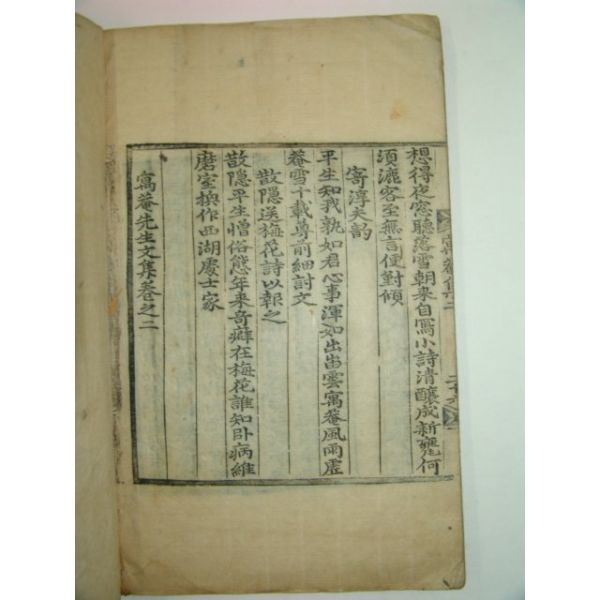 想得夜窓聽落雪朝来自寫小詩清釀成新甕何
須漉客至無言便對傾
寄淳夫韵
平生知我孰如君心事渾如出峀雲寓菴風雨虛
菴雪千載尊前細討文
散隱送梅花詩以報之
散隱平生憎俗態年来奇癖在梅花誰知卧病維
摩室換作西湖處士家
寓菴先生文集卷之二
寓菴集二